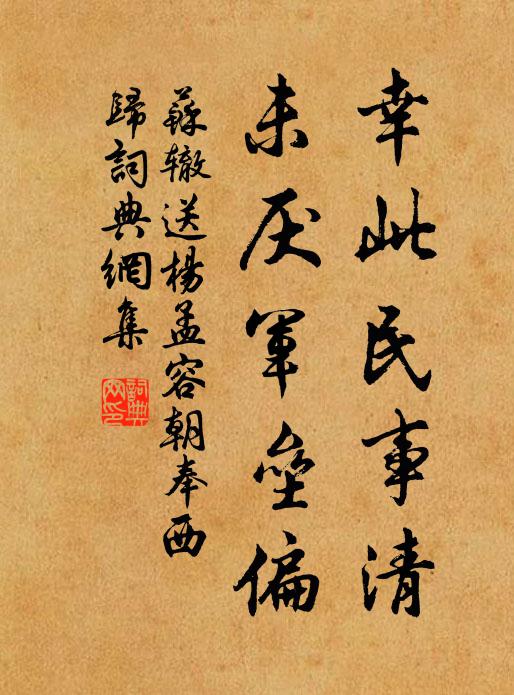 幸此民事清
未厌军垒偏
蘇辙送楊孟容朝奉西
歸詞典網集
詞典網印